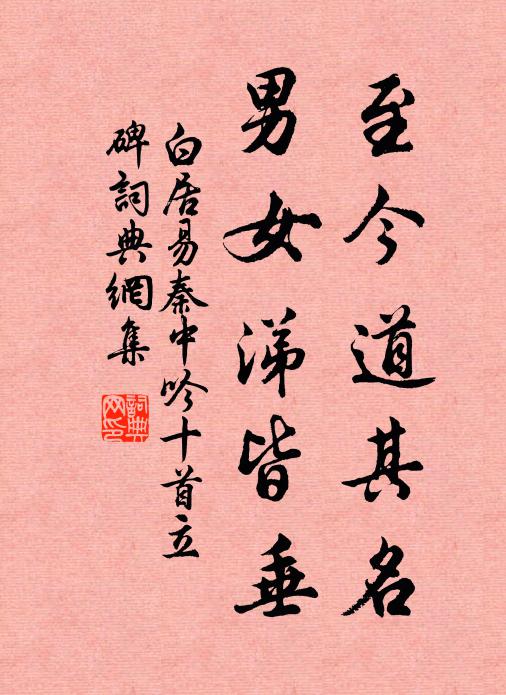 至今道其名
男女涕皆垂
白居易秦中吟十首立
碑詞典網集
詞典
网印